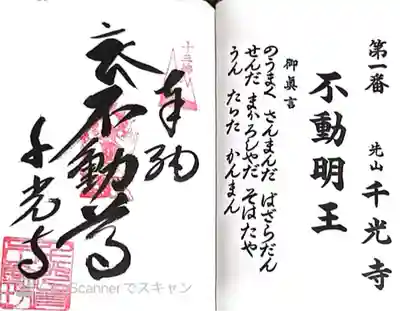 第一番
先山 千光寺
不動明王
御眞言
のうまく さんまんだ ばざらだん
せんだ まかろしやだ そはたや
うん たらた かんまん
奉納
衣不動尊
千光寺
Scannerでスキャン